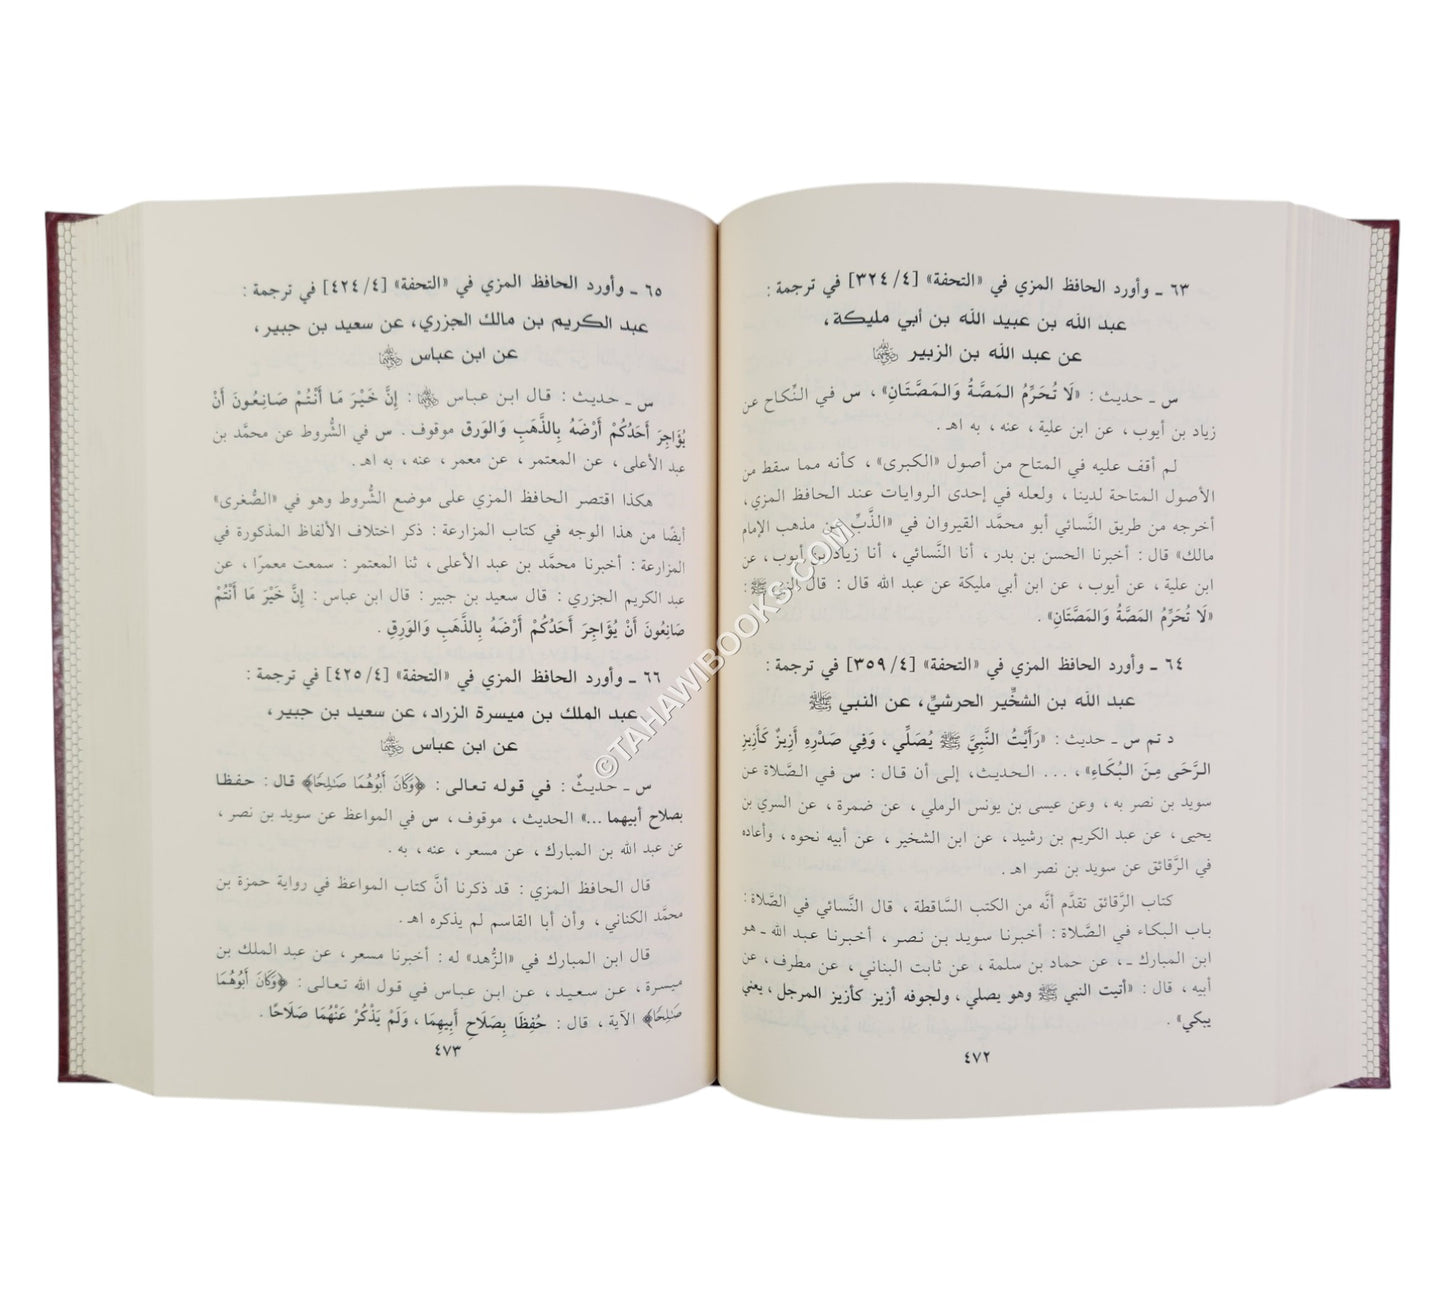 ٦٣ ـ وأورد الحافظ المزي في «التحفة» [٣٢٤/٤] في ترجمة :
عبد الله بن عبيد الله بن أبي مليكة،
عن عبد الله بن الزبير رضي الله عنهما
س ـ حديث : «لَا تُحَرِّمُ المَصَّةُ وَالمَصَّتَانِ» ، س في النِّكاح عن
زياد بن أيوب ، عن ابن علية ، عنه ، به اهـ .
لم أقف عليه في المتاح من أصول «الكبرى» ، كأنه مما سقط من
الأصول المتاحة لدينا ، ولعله في إحدى الروايات عند الحافظ المزي،
أخرجه من طريق النَّسائي أبو محمَّد القيروان في «الذَّبِّ عن مذهب الإمام
مالك» قال : أخبرنا الحسن بن بدر ، أنا النَّسائي ، أنا زياد بن أيوب، عن
ابن علية ، عن أيوب ، عن ابن أبي مليكة عن عبد الله قال : قال النبي ﷺ :
«لَا تُحَرِّمُ المَصَّةُ وَالمَصَّتَانِ» .
٦٤ ـ وأورد الحافظ المزي في «التحفة» [٣٥٩/٤] في ترجمة :
عبد الله بن الشخِّير الحرشيّ، عن النبي ﷺ
د تم س ـ حديث : «رَأَيْتُ النَّبِيَّ ﷺ يُصَلِّي ، وَفِي صَدْرِهِ أَزِيزٌ كَأَزِيزِ
الرَّحَى مِنَ البُكَاءِ» ، ... الحديث، إلى أن قال : س في الصَّلاة عن
سويد بن نصر به ، وعن عيسى بن يونس الرملي ، عن ضمرة ، عن السري بن
يحيى ، عن عبد الكريم بن رشيد ، عن ابن الشخير ، عن أبيه نحوه ، وأعاده
في الرَّقائق عن سويد بن نصر اهـ .
كتاب الرَّقائق تقدَّم أنَّه من الكتب السَّاقطة ، قال النَّسائي في الصَّلاة :
باب البكاء في الصَّلاة : أخبرنا سويد بن نصر ، أخبرنا عبد الله ـ هو
ابن المبارك ـ، عن حماد بن سلمة ، عن ثابت البناني ، عن مطرف ، عن
أبيه ، قال : «أتيت النبي ﷺ وهو يصلي ، ولجوفه أزيز كأزيز المرجل ، يعني
يبكي» .
٤٧٢
٦٥ ـ وأورد الحافظ المزي في «التحفة» [٤٢٤/٤] في ترجمة :
عبد الكريم بن مالك الجزري، عن سعيد بن جبير،
عن ابن عباس رضي الله عنهما
س ـ حديث : قال ابن عباس رضي الله عنهما : إِنَّ خَيْرَ مَا أَنْتُمْ صَانِعُونَ أَنْ
يُؤَاجِرَ أَحَدُكُمْ أَرْضَهُ بِالذَّهَبِ وَالوَرِقِ موقوف . س في الشُّروط عن محمَّد بن
عبد الأعلى ، عن المعتمر ، عن معمر ، عنه ، به اهـ .
هكذا اقتصر الحافظ المزي على موضع الشُّروط وهو في «الصُّغرى»
أيضًا من هذا الوجه في كتاب المزارعة : ذكر اختلاف الألفاظ المذكورة في
المزارعة : أخبرنا محمَّد بن عبد الأعلى ، ثنا المعتمر : سمعت معمرًا ، عن
عبد الكريم الجزري : قال سعيد بن جبير : قال ابن عباس : إِنَّ خَيْرَ مَا أَنْتُمْ
صَانِعُونَ أَنْ يُؤَاجِرَ أَحَدُكُمْ أَرْضَهُ بِالذَّهَبِ وَالوَرِقِ .
٦٦ ـ وأورد الحافظ المزي في «التحفة» [٤٢٥/٤] في ترجمة :
عبد الملك بن ميسرة الزراد، عن سعيد بن جبير،
عن ابن عباس رضي الله عنهما
س ـ حديثٌ : في قوله تعالى : ﴿وَكَانَ أَبُوهُمَا صَٰلِحًا﴾ قال : حفظا
بصلاح أبيهما ...» الحديث ، موقوف ، س في المواعظ عن سويد بن نصر ،
عن عبد الله بن المبارك ، عن مسعر ، عنه ، به .
قال الحافظ المزي : قد ذكرنا أنَّ كتاب المواعظ في رواية حمزة بن
محمَّد الكناني ، وأن أبا القاسم لم يذكره اهـ .
قال ابن المبارك في «الزُّهد» له : أخبرنا مسعر ، عن عبد الملك بن
ميسرة ، عن سعيد، عن ابن عباس في قول الله تعالى : ﴿وَكَانَ أَبُوهُمَا
صَٰلِحًا﴾ الآية ، قال : حُفِظَا بِصَلَاحِ أَبِيهِمَا ، وَلَمْ يَذْكُرْ عَنْهُمَا صَلَاحًا .
٤٧٣
©TAHAWIBOOKS.COM